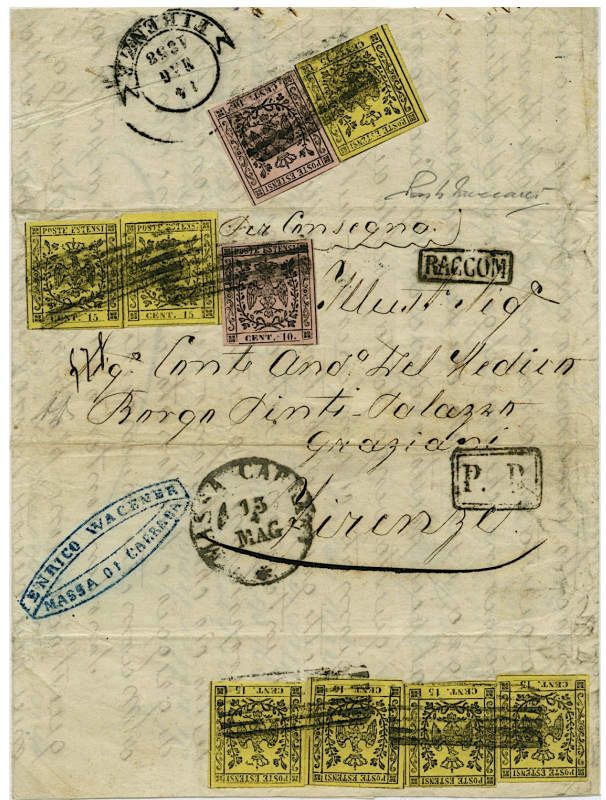 FIRENZE
14
MAG
1858
POSTE ESTENSI
CENT. 10.
POSTE ESTENSI
CENT. 15
Per Consegna
POSTE ESTENSI
CENT. 15
POSTE ESTENSI
CENT. 15
POSTE ESTENSI
CENT. 10.
RACCOM
Illust. Sigr
Sigr. Conte Ando. Del Medico
Borgo Pinti-Palazzo
Graziani
P. D.
Firenze
MASSA CARRARA
13
MAG
ENRICO WACENER
MASSA DI CARRARA
CENT. 15
POSTE ESTENSI
CENT. 15
POSTE ESTENSI
CENT. 15
POSTE ESTENSI
CENT. 15
POSTE ESTENSI